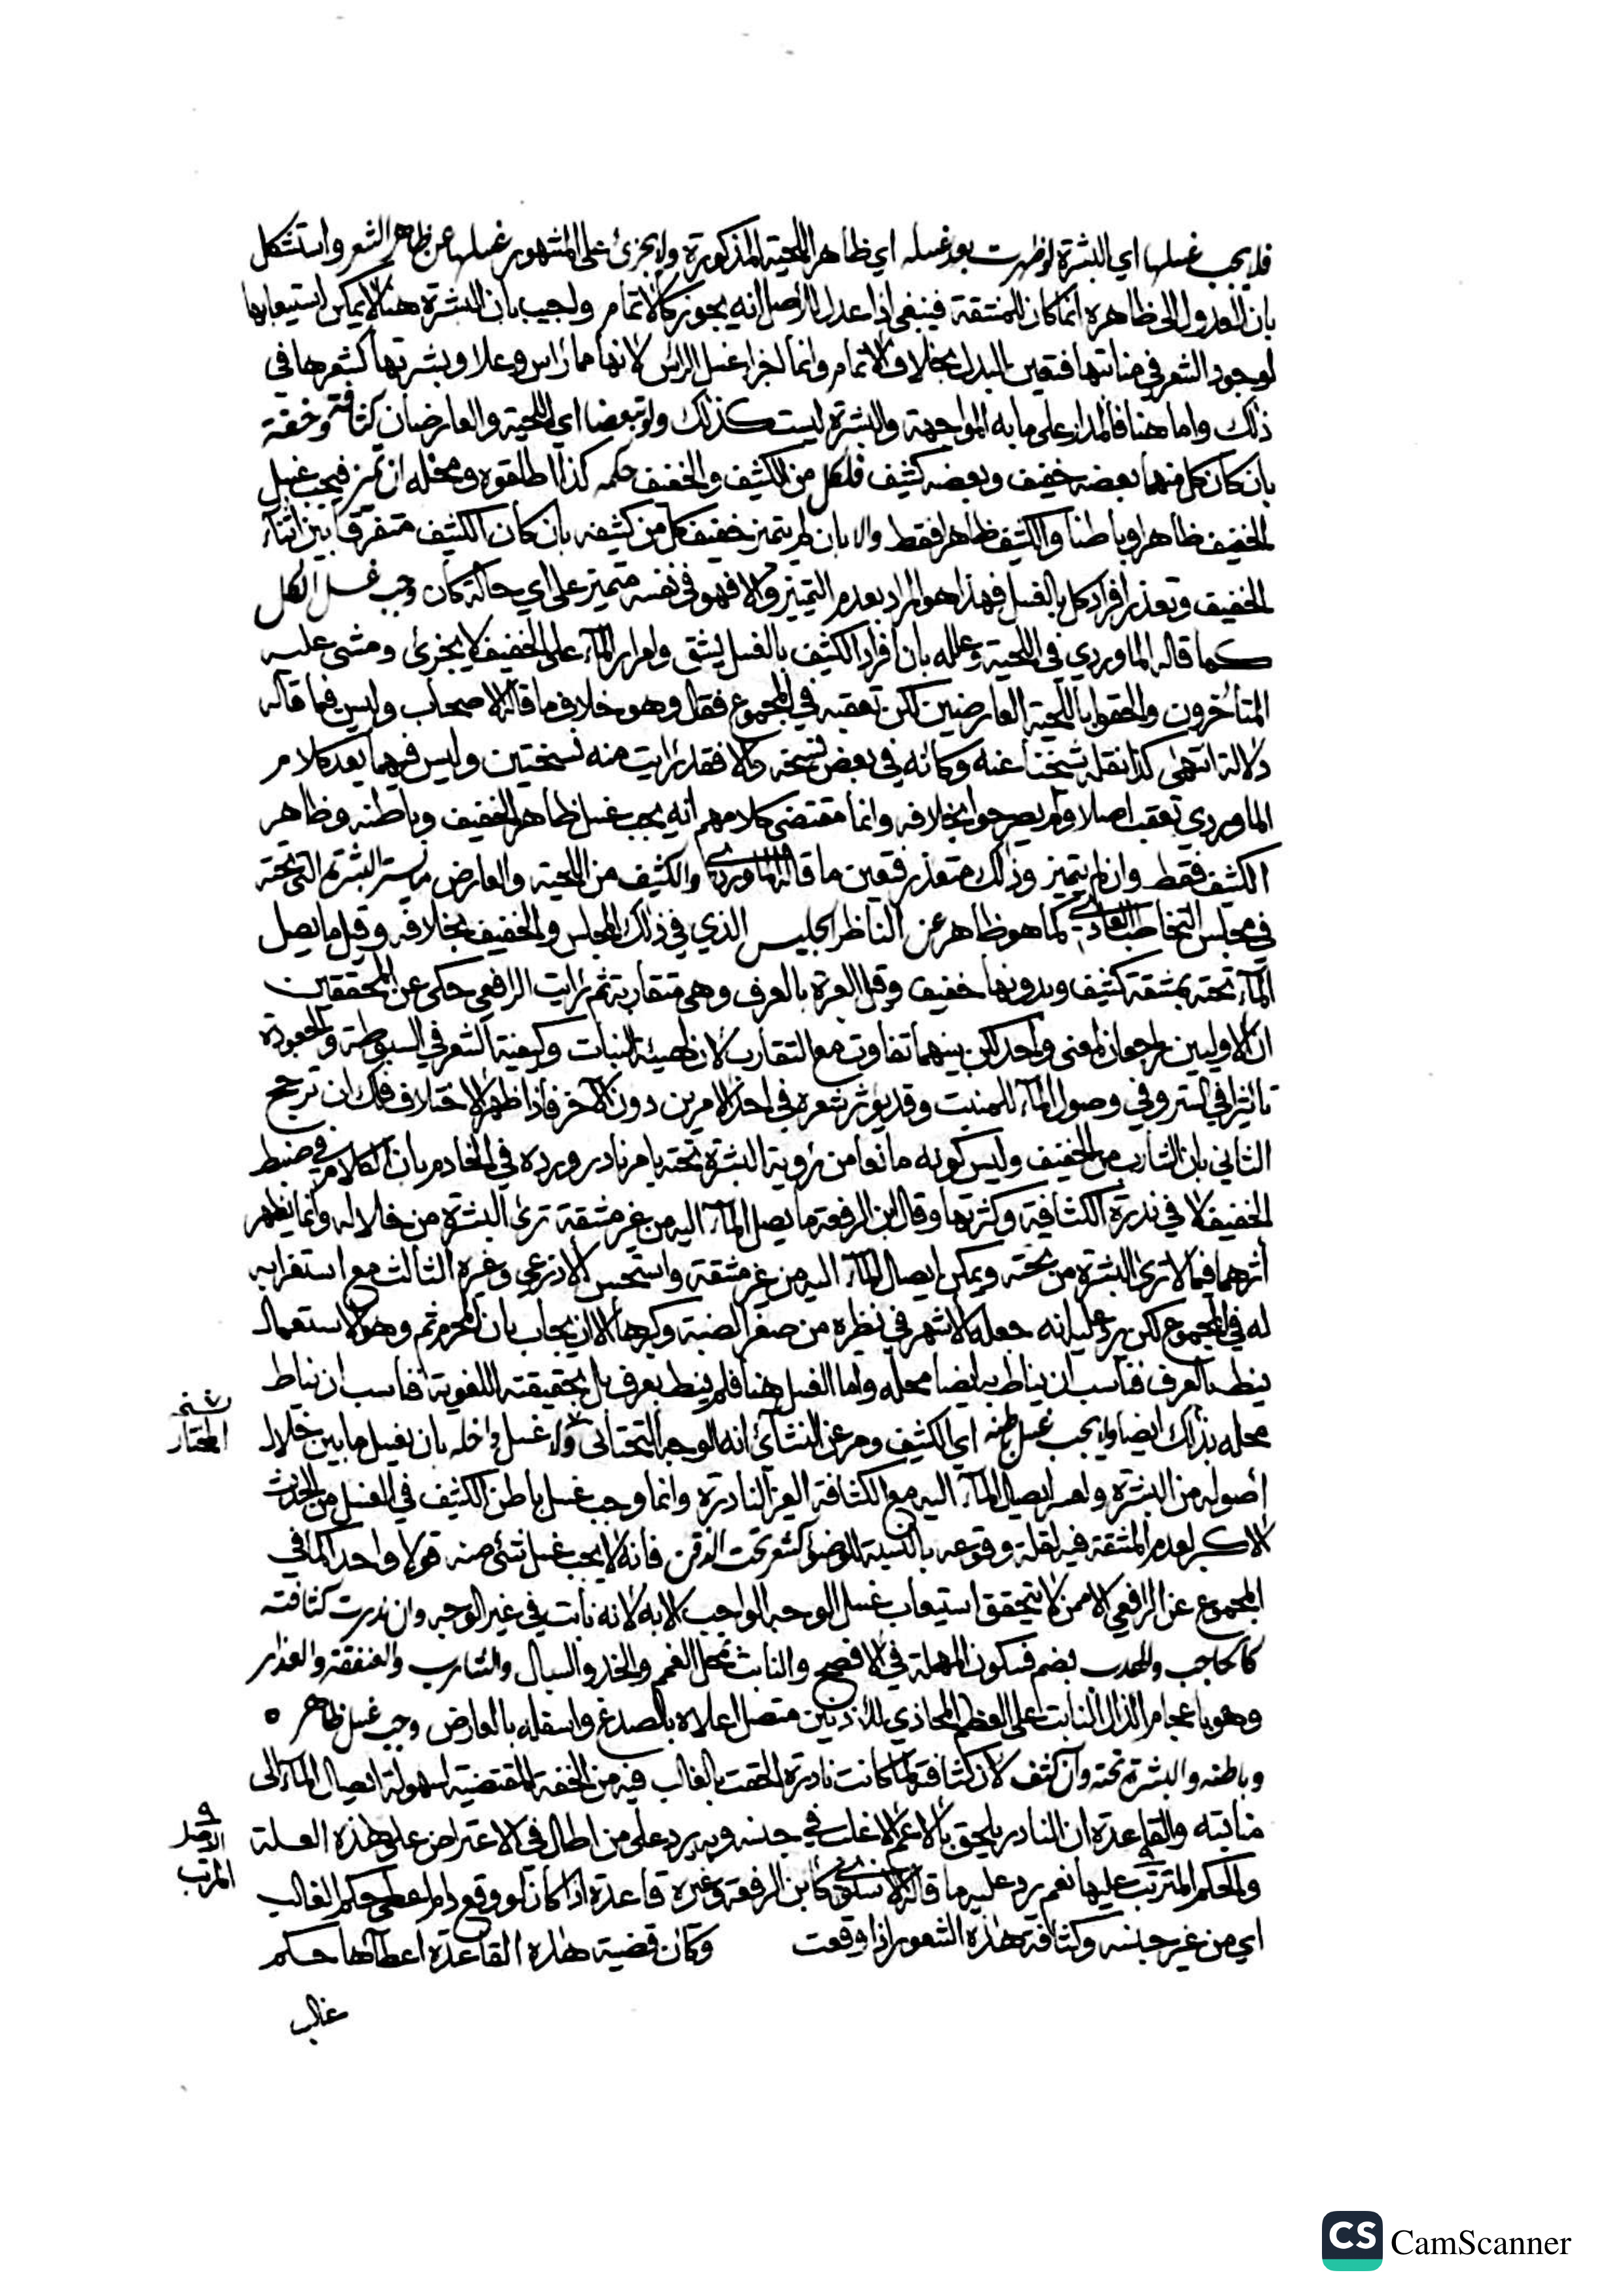 فلا يجب غسلها اي البشرة لو ظهرت بعد غسله اي ظاهر اللحية المذكورة ولا يجزئ على المشهور غسلها عن ظاهر الشعر واستشكل
بان العدول الى ظاهره انما كان للمشقة فينبغي اذا عدل للاصل انه يجوز كالاتمام واجيب بان البشرة هنا لا يمكن استيعابها
لوجود الشعر في منابتها فتعين البدل بخلاف الاتمام وانما اجزا غسل الراس لانها مما راس وعلا وبشرتها كشعرها في
ذلك واما هنا فالمدار على ما به المواجهة والبشرة ليست كذلك ولو تبعضا اي اللحية والعارضان كثافة وخفة
بان كان كل منهما بعضه خفيف وبعضه كثيف فلكل من الكثيف والخفيف حكمه كذا اطلقوه ومحله ان تميز فيجب غسل
الخفيف ظاهرا وباطنا والكثيف ظاهرا فقط والا بان لم يتميز خفيف كل من كثيفه بان كان الكثيف متفرقا بين اثناء
الخفيف وتعذر افراد كل بالغسل فهذا هو المراد بعدم التميز والا فهو في نفسه متميز على اي حالة كان وجب غسل الكل
كما قاله الماوردي في اللحية وعلله بان افراد الكثيف بالغسل يشق وامرار الماء على الخفيف لا يجزئ ومشى عليه
المتأخرون والحقوا باللحية العارضين لكن تعقبه في المجموع فقال وهو خلاف ما قاله الاصحاب وليس فيما قاله
دلالة انتهى كذا نقله شيخنا عنه وكانه في بعض نسخه والا فقد رايت منه نسختين وليس فيهما بعد كلام
الماوردي تعقب اصلا ولم يصرحوا بخلافه وانما مقتضى كلامهم انه يجب غسل ظاهر الخفيف وباطنه وظاهر
الكثيف فقط وان لم يتميز وذلك متعذر فتعين ما قاله الماوردي والكثيف من اللحية والعارض ما ستر البشرة التي تحته
في مجلس التخاطب العادي كما هو ظاهر عن الناظر الجليس الذي في ذلك المجلس والخفيف بخلافه وقيل ما يصل
الماء تحته بمشقة كثيف وبدونها خفيف وقيل العبرة بالعرف وهي متقاربة ثم رايت الرافعي حكى عن المحققين
ان الاوليين يرجعان لمعنى واحد لكن بينهما تفاوت مع التقارب لان لهيئة النبات وكيفية الشعر في السبوطة والجعودة
تاثيرا في الستر وفي وصول الماء للمنبت وقد يؤثر شعره في احد الامرين دون الاخر فاذا ظهر الاختلاف فلك ان ترجح
الثاني بان الشارب من الخفيف وليس كونه مانعا من رؤية البشرة تحته بامر نادر ورده في الخادم بان الكلام في ضبط
الخفيف لا في ندرة الكثافة وكثرتها وقال ابن الرفعة ما يصل الماء اليه من غير مشقة ترى البشرة من خلاله وانما يظهر
أثرهما فيما لا ترى البشرة من تحته ويمكن ايصال الماء اليه من غير مشقة واستحسن الاذرعي وغيره الثالث مع استغرابه
له في المجموع لكن يرد عليه انه جعله الاشهر في نظيره من صغر الضبة وكبرها الا ان يجاب بان المحرم ثم وهو الاستعمال
ينظر بالعرف فناسب ان يناط به ايضا محله واما الغسل هنا فلم ينط بعرف بل بحقيقته اللغوية فناسب ان يناط
محله بذلك ايضا ولا يجب غسل باطنه اي الكثيف ومر عن النشائي انه الوجه التحتاني ولا غسل داخله بان يغسل ما بين خلال
أصوله من البشرة ولعسر ايصال الماء اليه مع الكثافة الغير النادرة وانما وجب غسل باطن الكثيف في الغسل من الحدث
الاكبر لعدم المشقة فيه لقلة وقوعه بالنسبة للوضوء كشعر تحت الذقن فانه لا يجب غسل شئ منه قولا واحدا كما في
المجموع عن الرافعي الا ممن لا يتحقق استيعاب غسل الوجه الواجب الا به لانه نابت في غير الوجه وان ندرت كثافته
كالحاجب والهدب بضم فسكون المهملة في الافصح والنابت بمحل الغمم والخد والسبال والشارب والعنفقة والعذار
وهو باعجام الذال النابت على العظم المحاذي للاذنين متصل اعلاه بالصدغ واسفله بالعارض وجب غسل ظاهره
وباطنه والبشرة تحته وان كثف لان كثافته لما كانت نادرة الحقت بالغالب فيه من الخفة المقتضية لسهولة ايصال الماء الى
منابته والقاعدة ان النادر يلحق بالاعم الاغلب في جنسه وبه يرد على من اطال في الاعتراض على هذه العلة
والحكم المترتب عليها نعم يرد عليه ما قاله الاسنوي كابن الرفعة وغيره قاعدة اذا كان لو وقع دام اعطى حكم الغالب
اي من غير جنسه وكثافة هذه الشعور اذا وقعت وكان قضية هذه القاعدة اعطاءها حكم
غالب